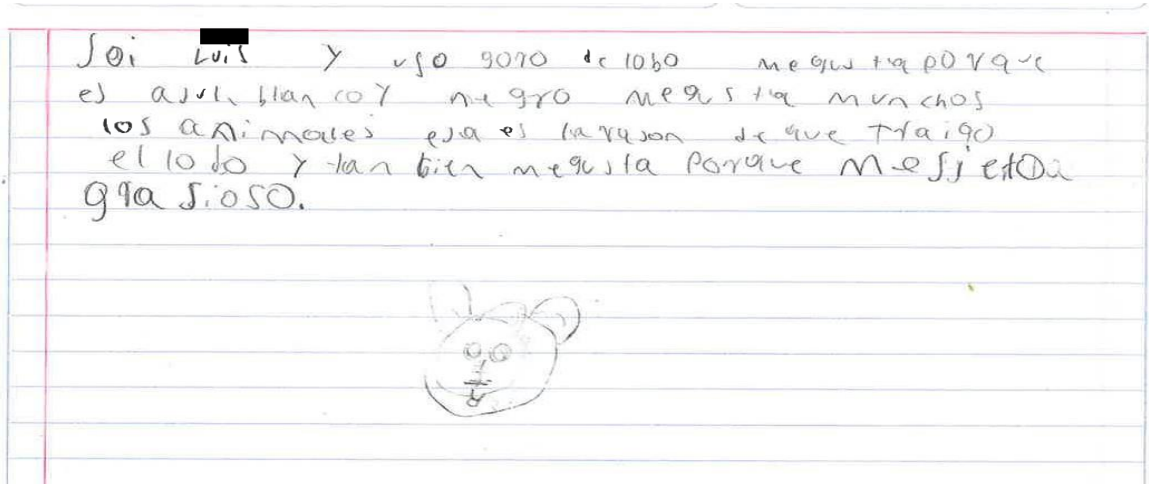 Soi Luis Y uso goro de lobo me gusta porque
es asul, blanco Y negro me gusta munchos
los animales esa es la rason de que traigo
el lobo Y tan bien me gusta Porque me
grasioso.